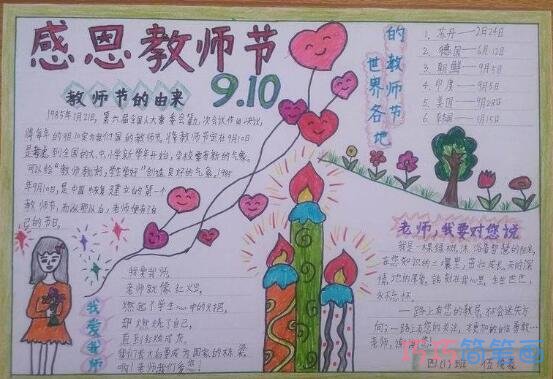 感恩教师节
9.10
教师节的由来
1985年1月21日,第六届全国人大常委会第九次会议作出决议,
将每年的9月10定为我们国的教师节,将教师节定在9月10日
是考虑到全国的大、中、小学新学年开始,学校要有新的气象,
可以给“教师教好,学生学好”创造良好的气象。1985
年9月10日,是中国恢复建立的第一个
教师节,而从那以后,老师便有了自
己的节日。
世界各地
的教师节
1、苏丹——2月24日
2、德国——6月12日
3、朝鲜——9月5日
4、印度——9月5日
5、美国——9月28日
6、韩国——5月15日
我爱我师
我爱我师,
老师就像红火烛,
燃起了学生心中的火把,
却燃烧了自己,
直到红烛成灰。
老师,我要对您说
我是一棵绿树,沐浴着智慧的阳光,
在您知识的土壤里,茁壮成长,
永志不忘
——一路上有您的教导,才会不迷失方
向;一路上有您的关注,才更加的自信勇敢…
老师,谢谢您!
巧巧简笔画